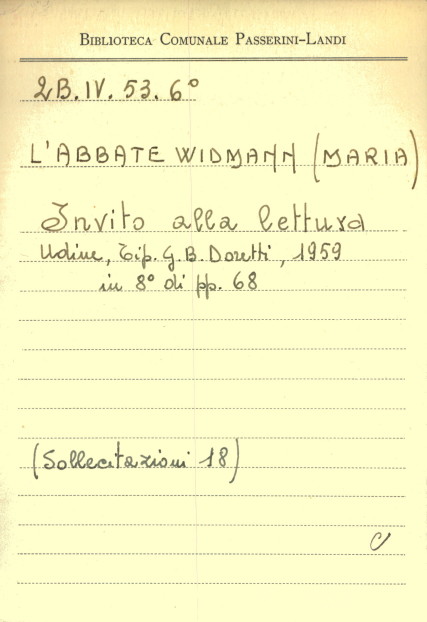 BIBLIOTECA COMUNALE PASSERINI-LANDI
2B.IV.53.6°
L'ABBATE WIDMANN (MARIA)
Invito alla lettura
Udine, Tip. G.B. Doretti, 1959
in 8° di pp. 68
(Sollecitazioni 18)